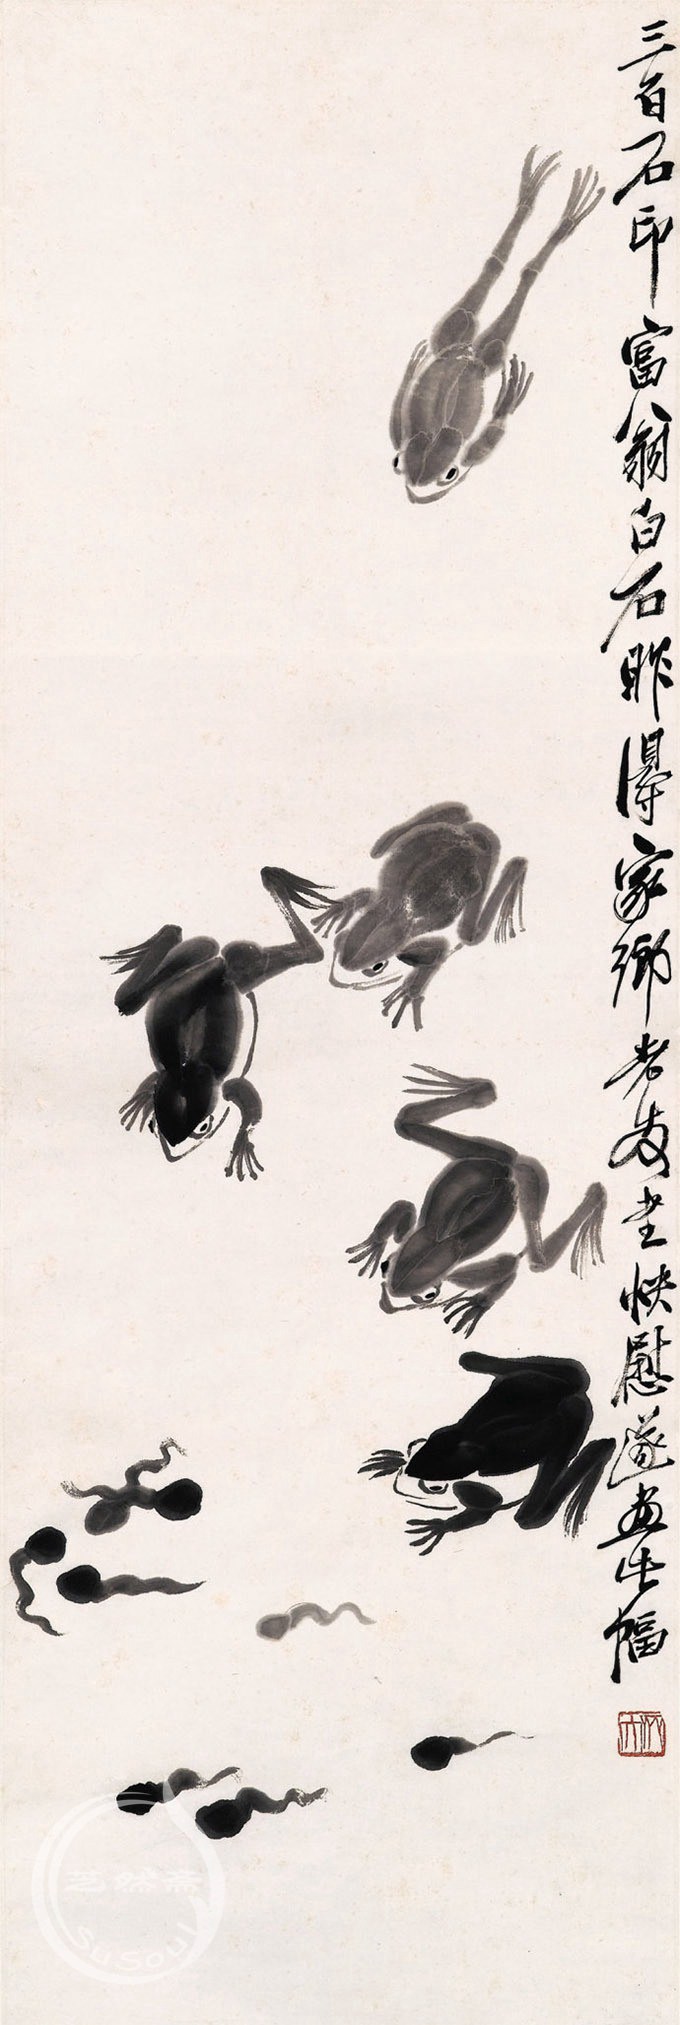 三百石印富翁白石昨得家乡老友书快慰遂画此幅
芝然斋
SuSoul